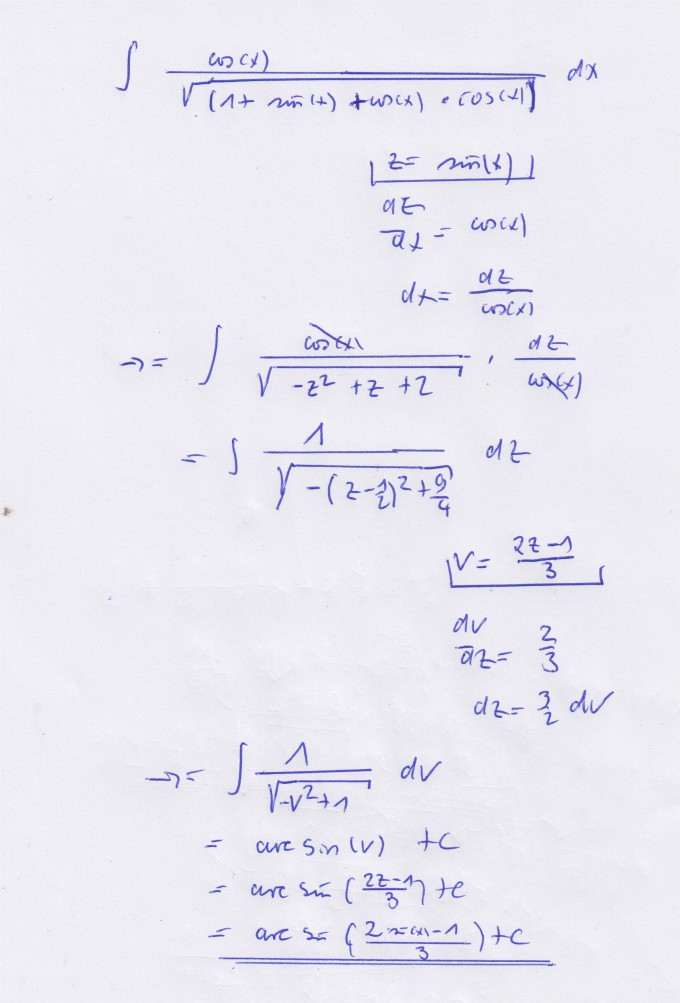 ∫ cos(x) / √((1 + sin(x) + cos(x) · cos(x)) dx
z = sin(x)
dz/dx = cos(x)
dx = dz/cos(x)
→ = ∫ cos(x) / √(-z² + z + 2) · dz/cos(x)
= ∫ 1 / √(-(z - 1/2)² + 9/4) dz
v = (2z - 1)/3
dv/dz = 2/3
dz = 3/2 dv
→ = ∫ 1 / √(-v² + 1) dv
= arc sin (v) + c
= arc sin ((2z - 1)/3) + c
= arc sin ((2 sin(x) - 1)/3) + c